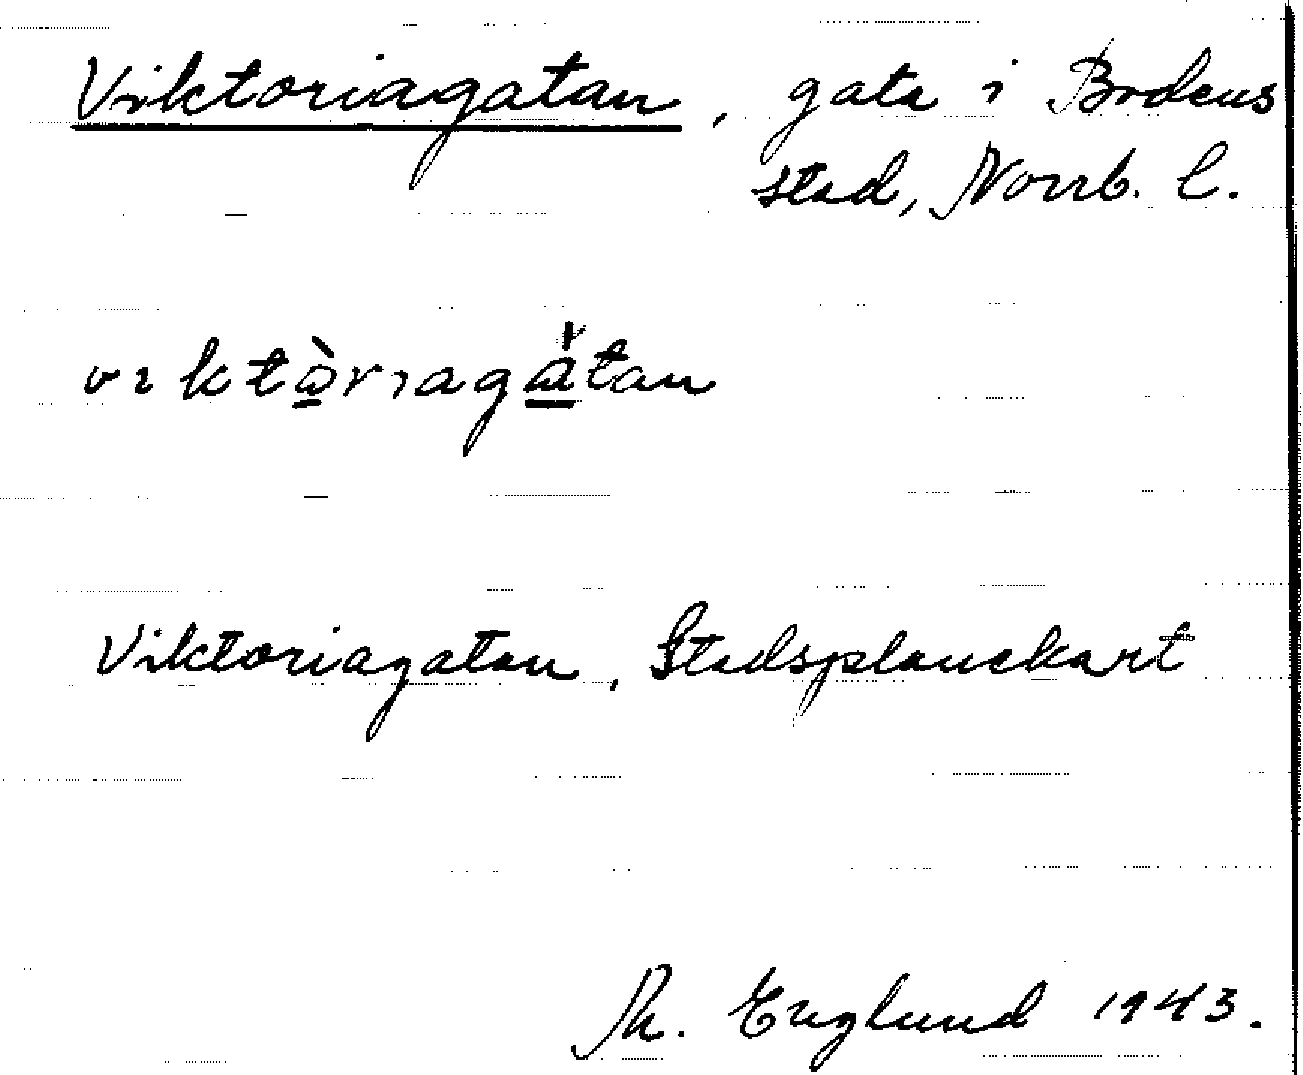 Viktoriagatan, gata i Bodens
stad, Norrb. l.
vıktòrıagätan
Viktoriagatan, Stadsplanekart
Th. Englund 1943.